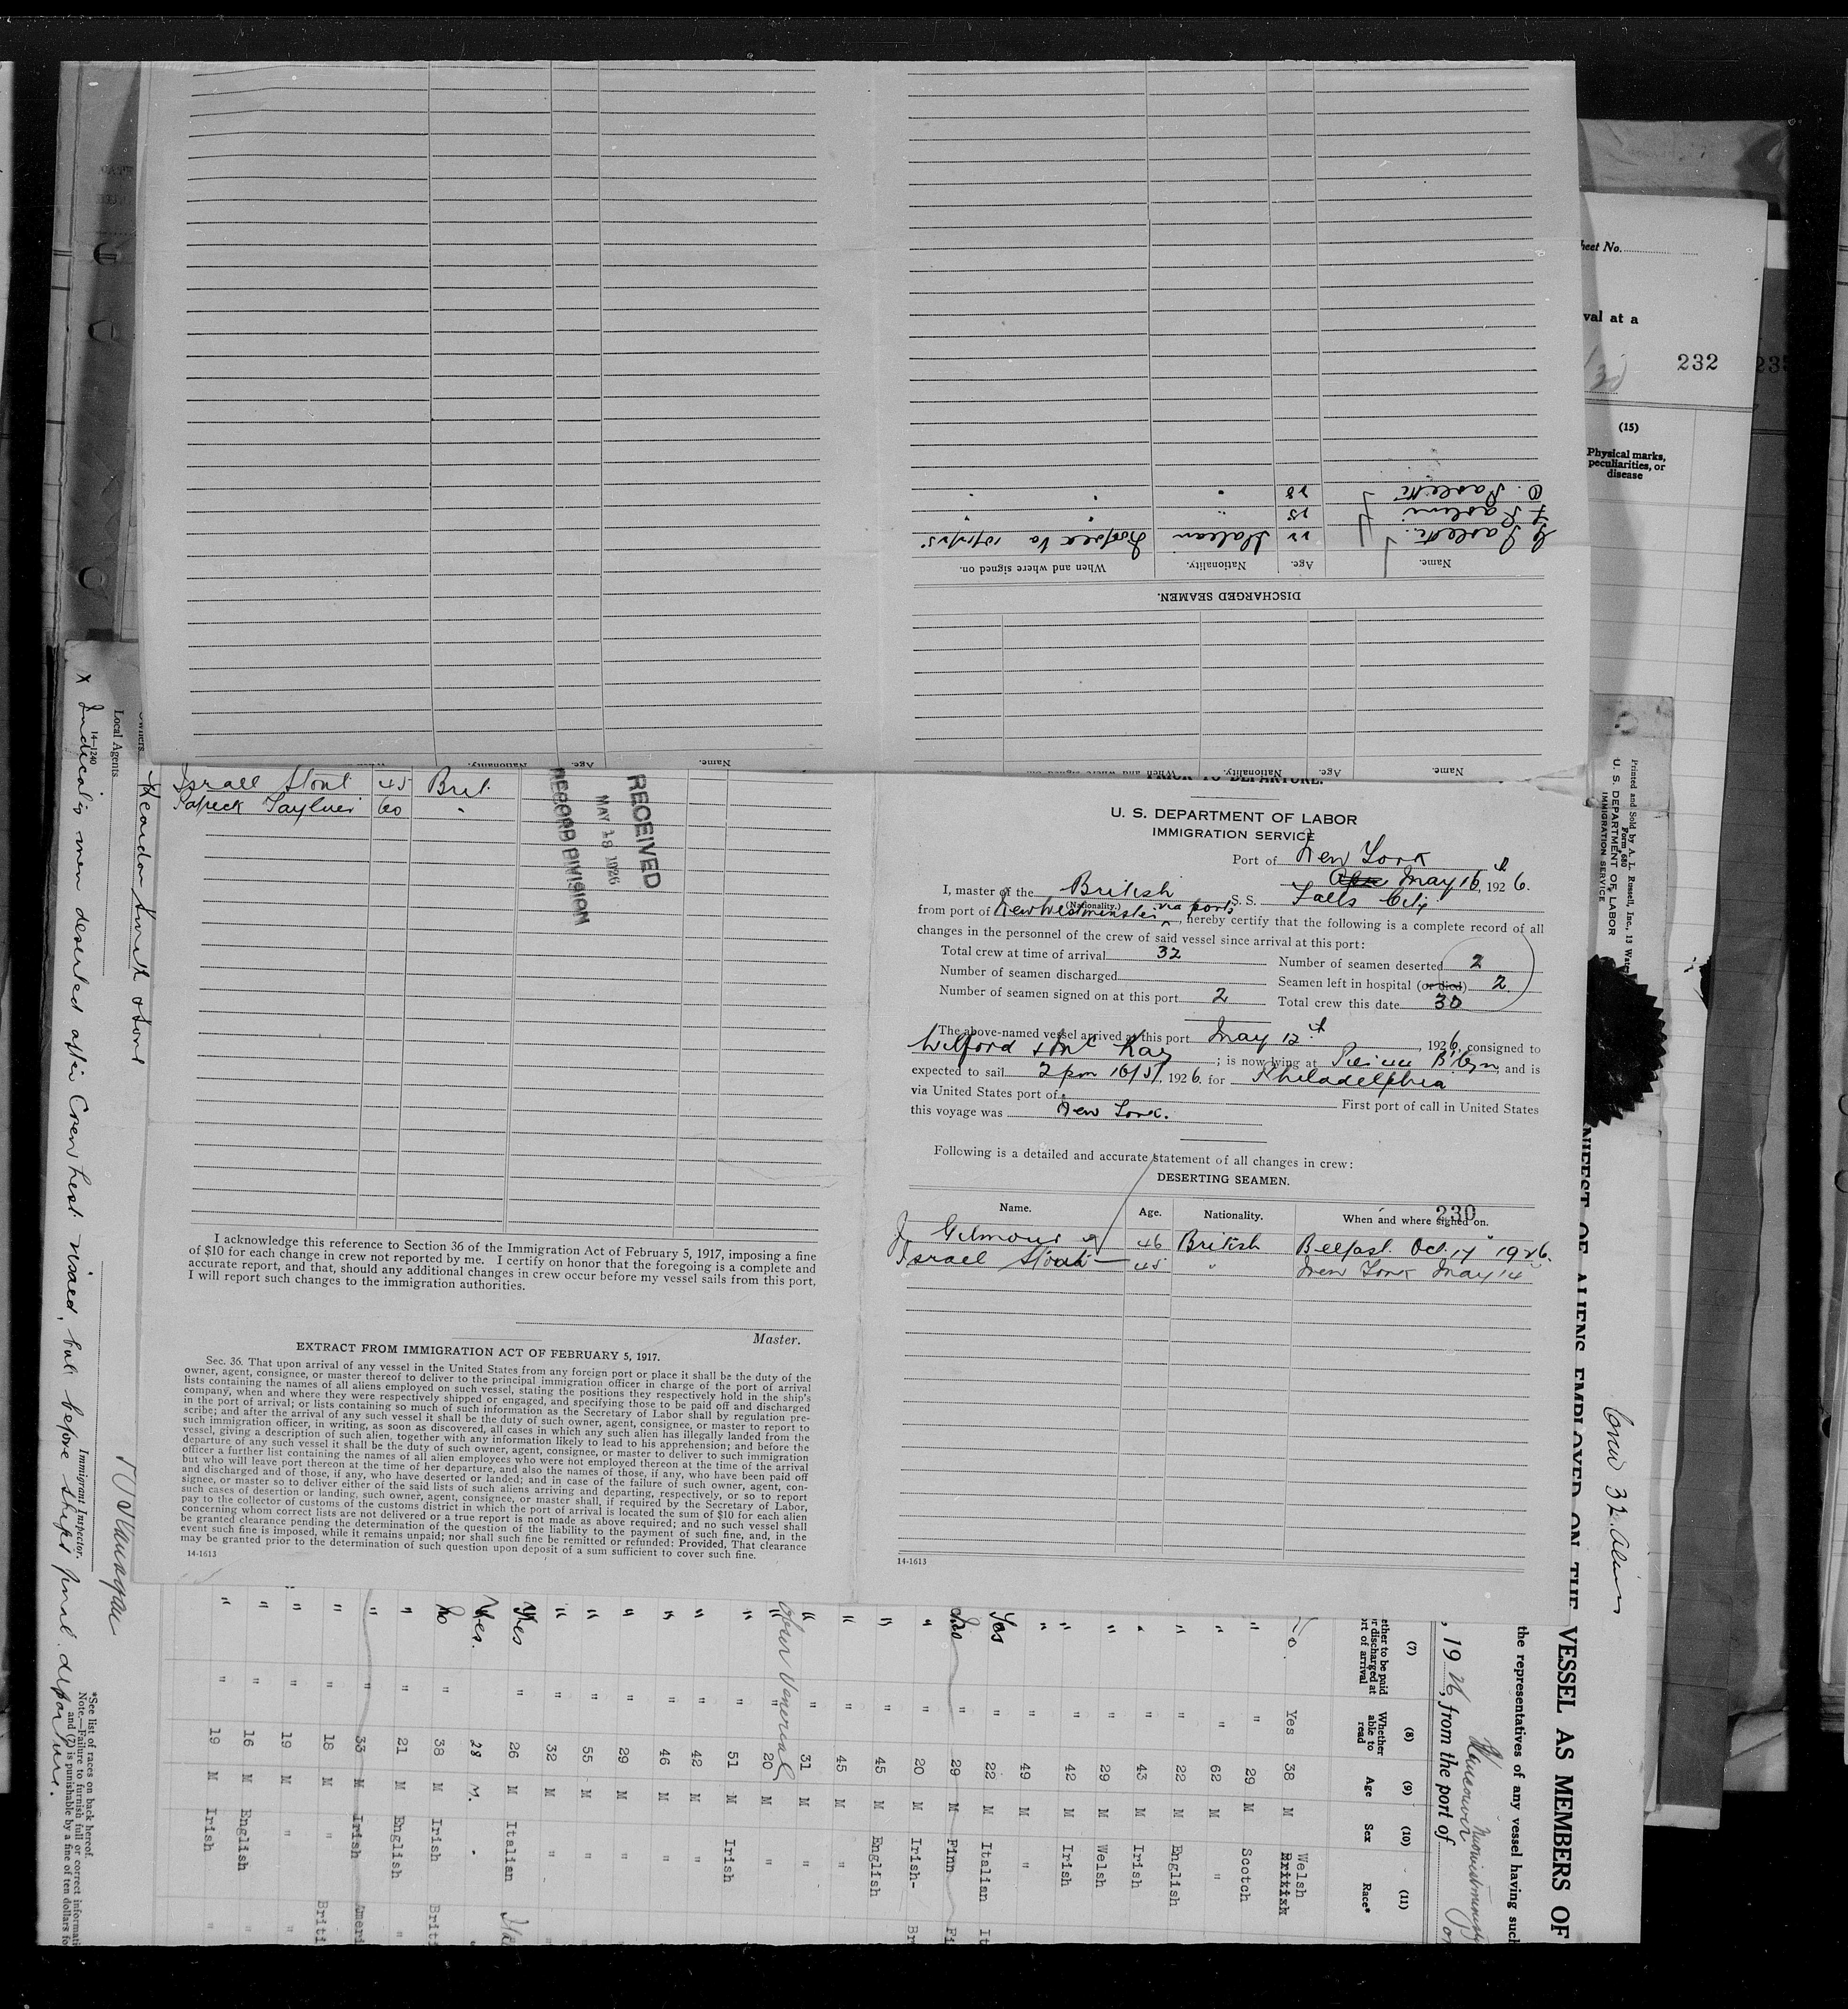 Sheet No.
val at a
232
(15)
Physical marks,
peculiarities, or
disease
DISCHARGED SEAMEN.
Name. Age. Nationality. When and where signed on.
22 Italian
Name. Age. Nationality. When and where signed on.
Israel Stout 45 Brit.
60 "
RECEIVED
MAY 18 1926
RECORD DIVISION
PRIOR TO DEPARTURE.
U. S. DEPARTMENT OF LABOR
IMMIGRATION SERVICE
Port of New York
May 16th, 1926.
I, master of the British S. S. Falls City
(Nationality.)
from port of New Westminster via ports, hereby certify that the following is a complete record of all
changes in the personnel of the crew of said vessel since arrival at this port:
Total crew at time of arrival 32 Number of seamen deserted 2
Number of seamen discharged Seamen left in hospital (or died) 2
Number of seamen signed on at this port 2 Total crew this date 30
The above-named vessel arrived at this port May 12th, 1926, consigned to
; is now lying at , and is
expected to sail 2 pm 16/5/, 1926. for Philadelphia
via United States port of First port of call in United States
this voyage was New York.
Following is a detailed and accurate statement of all changes in crew:
DESERTING SEAMEN.
230
Name. Age. Nationality. When and where signed on.
J Gilmour 46 British Belfast. Oct. 17" 1926.
Israel Stout 45 " New York May 14
14-1613
I acknowledge this reference to Section 36 of the Immigration Act of February 5, 1917, imposing a fine
of $10 for each change in crew not reported by me. I certify on honor that the foregoing is a complete and
accurate report, and that, should any additional changes in crew occur before my vessel sails from this port,
I will report such changes to the immigration authorities.
Master.
EXTRACT FROM IMMIGRATION ACT OF FEBRUARY 5, 1917.
Sec. 36. That upon arrival of any vessel in the United States from any foreign port or place it shall be the duty of the
owner, agent, consignee, or master thereof to deliver to the principal immigration officer in charge of the port of arrival
lists containing the names of all aliens employed on such vessel, stating the positions they respectively hold in the ship's
company, when and where they were respectively shipped or engaged, and specifying those to be paid off and discharged
in the port of arrival; or lists containing so much of such information as the Secretary of Labor shall by regulation pre-
scribe; and after the arrival of any such vessel it shall be the duty of such owner, agent, consignee, or master to report to
such immigration officer, in writing, as soon as discovered, all cases in which any such alien has illegally landed from the
vessel, giving a description of such alien, together with any information likely to lead to his apprehension; and before the
departure of any such vessel it shall be the duty of such owner, agent, consignee, or master to deliver to such immigration
officer a further list containing the names of all alien employees who were not employed thereon at the time of the arrival
but who will leave port thereon at the time of her departure, and also the names of those, if any, who have been paid off
and discharged and of those, if any, who have deserted or landed; and in case of the failure of such owner, agent, con-
signee, or master so to deliver either of the said lists of such aliens arriving and departing, respectively, or so to report
such cases of desertion or landing, such owner, agent, consignee, or master shall, if required by the Secretary of Labor,
pay to the collector of customs of the customs district in which the port of arrival is located the sum of $10 for each alien
concerning whom correct lists are not delivered or a true report is not made as above required; and no such vessel shall
be granted clearance pending the determination of the question of the liability to the payment of such fine, and, in the
event such fine is imposed, while it remains unpaid; nor shall such fine be remitted or refunded: Provided, That clearance
may be granted prior to the determination of such question upon deposit of a sum sufficient to cover such fine.
14-1613
Printed and Sold by A. L. Russell, Inc., 13 Water
Form 680
U. S. DEPARTMENT OF LABOR
IMMIGRATION SERVICE
NIFEST OF ALIENS EMPLOYED ON THE VESSEL AS MEMBERS OF
the representatives of any vessel having such
, 1926, from the port of Vancouver
Crew 32 alien
(7) (8) (9) (10) (11)
Whether able to read
Age
Sex
Race*
Yes 38 M Welsh British
" 29 M Scotch
" 62 M "
" 22 M English
" 43 M Irish
" 29 M Welsh
" 42 M Irish
" 49 M "
Yes " 22 M Italian It
" 29 M Finn Fi
" 20 M Irish- Br
" 45 M English
" 45 M "
" 31 M "
" 20 M "
" 51 M Irish
" 42 M "
" 46 M "
" 29 M "
" 55 M "
" 32 M "
Yes " 26 M Italian
Yes. 28 M.
No 38 M Irish Briti
" 21 M English "
" 33 M Irish Ameri
" 18 M " Briti
" 19 M " "
" 16 M English "
" 19 M Irish "
Immigrant Inspector.
Local Agents
Owners
14-1240
X Indicating men deserted after Crew List vised, but before ships final departure.
*See list of races on back hereof.
Note.—Failure to furnish full or correct informati
and (7) is punishable by a fine of ten dollars fo